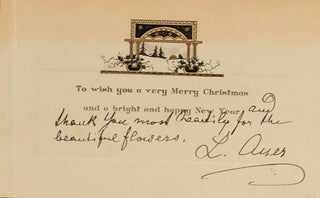 To wish you a very Merry Christmas
and a bright and happy New Year and
thank you most heartily for the
beautiful flowers.
L. Ayer